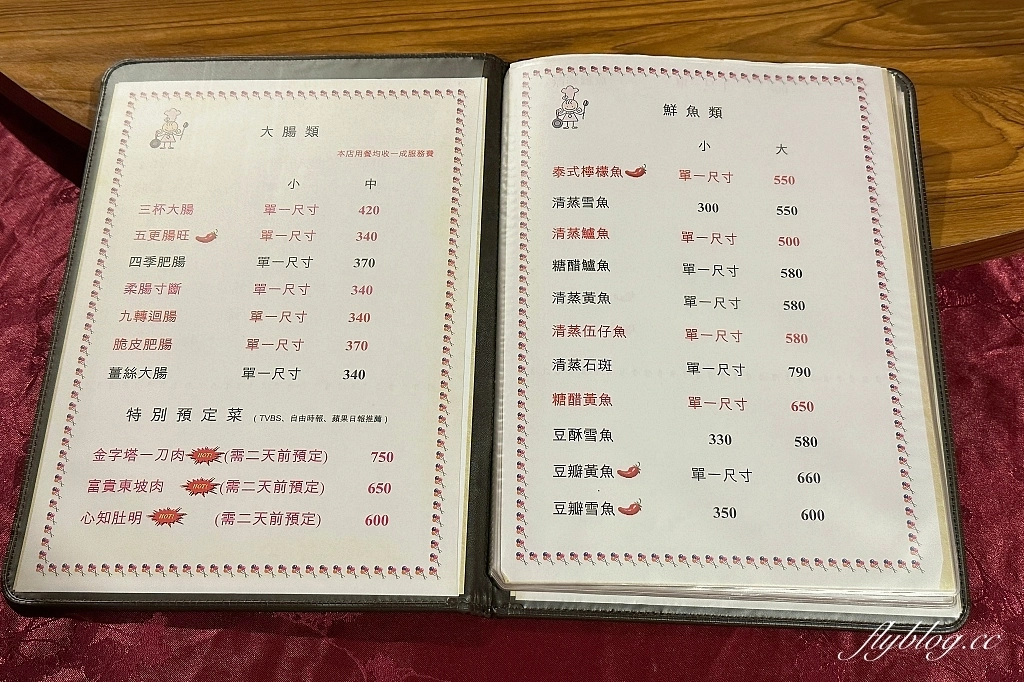 大腸類
本店用餐均收一成服務費
小 中
三杯大腸 單一尺寸 420
五更腸旺 單一尺寸 340
四季肥腸 單一尺寸 370
柔腸寸斷 單一尺寸 340
九轉迴腸 單一尺寸 340
脆皮肥腸 單一尺寸 370
薑絲大腸 單一尺寸 340
特別預定菜 (TVBS、自由時報、蘋果日報推薦)
金字塔一刀肉 HOT! (需二天前預定) 750
富貴東坡肉 HOT! (需二天前預定) 650
心知肚明 HOT! (需二天前預定) 600
鮮魚類
小 大
泰式檸檬魚 單一尺寸 550
清蒸雪魚 300 550
清蒸鱸魚 單一尺寸 500
糖醋鱸魚 單一尺寸 580
清蒸黃魚 單一尺寸 580
清蒸伍仔魚 單一尺寸 580
清蒸石斑 單一尺寸 790
糖醋黃魚 單一尺寸 650
豆酥雪魚 330 580
豆瓣黃魚 單一尺寸 660
豆瓣雪魚 350 600
flyblog.cc